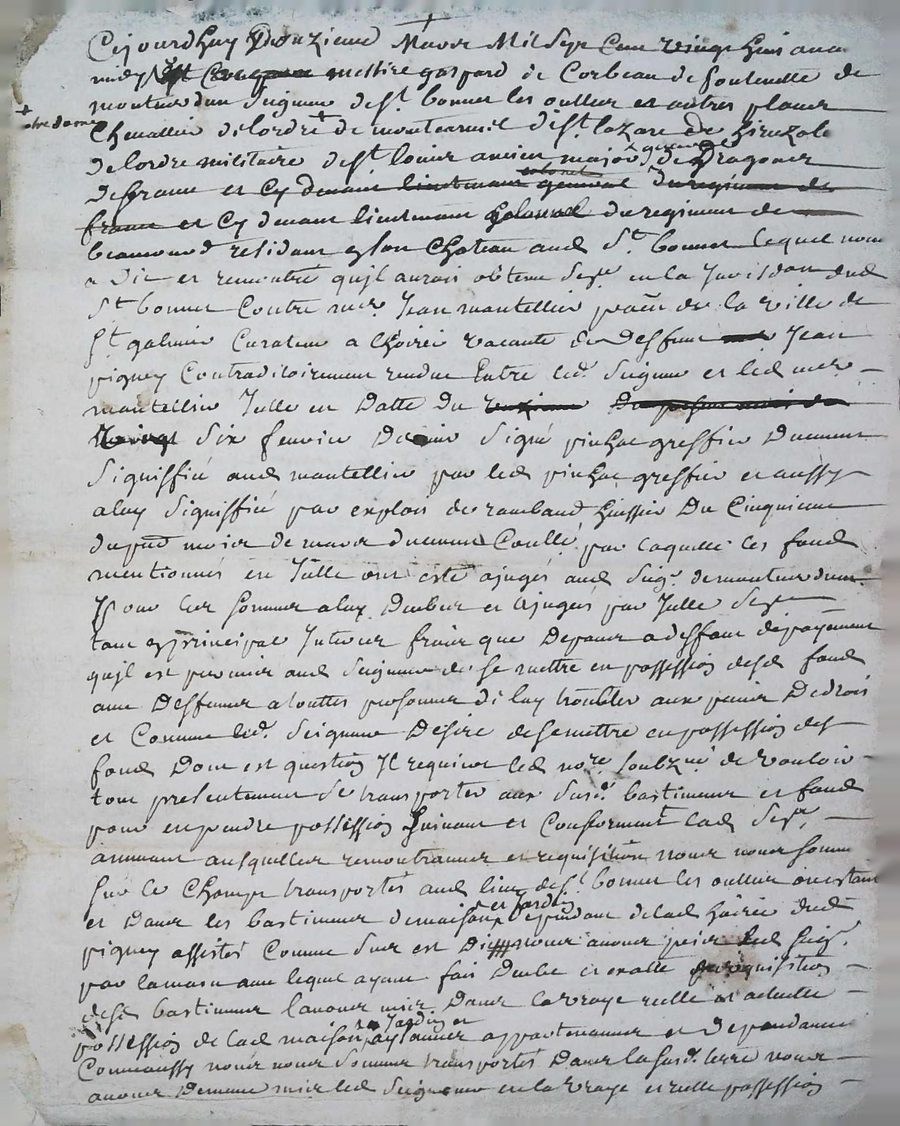 Cejourdhuy Douzieme Mars Mil Sept Cent vingt huit avant
midy Est Comparu messire gaspard de Corbeau de fontenette de
montverdun Seigneur de St. bonnet les oullier et autres places
+ notre dame
Chevallier de lordre + de montcarmel de St lazare de hieruzale
de lordre militaire de St louis ancien major general de Dragons
de france et Cy devant lieutenant colonel general du regiment de
france et Cy devant lieutenant Colonnel du regiment de
beaumond residant en son Chateau aud St. bonnet lequel nous
a Dit et remontré quil auroit obtenu Sentce. en la Jurisdon dud
St bonnet Contre me Jean mantellier de la ville de
St galmier Curateur a Lhoirie vacante de deffunt Jean
pigney Contradictoirement rendue Entre led. Seigneur et led me
mantellier Jcelle en Datte du
Six fevrier Dernier Signé pinhac greffier Duement
Signiffié aud mantellier par led pinhac greffier et aussy
a luy Signiffié par exploit de rambaud huissier Du Cinquieme
du pnt mois de mars duement Coullé par laquelle les fond
mentionnés en Jcelle ont esté ajugés aud Seigr. de montverdun
pour les sommes a luy Deubes et ajugées par Jcelle Sentce
tant en principal Interest frais que Depans a deffaut de payement
quil est permis aud Seigneur de se mettre en possession desd fond
avec Deffences a touttes personnes de luy troubler aux peines De droit
et Comme led. Seigneur Desire de se mettre en possession des
fond Dont est question Il requiert led nore. Soubzné de vouloir
tout presentement Se transporter aux Susd. bastiments et fond
pour en prendre possession Suivant et Conforment a lad Sentce
auxquelles remontrances et requisition nous nous sommes
sur le Champ transportés aud lieu de St. bonnet les oullier
et Dans les bastiments de maison et jardin dépendant de lad hoirie dud
pigney assistés Comme Sus est Dit nous avons prix led Seigr.
par la main avec lequel ayant fait Deube et exacte requisition
desd bastiments lavons mis Dans la vraye reelle et actuelle
possession de lad maison Jardin et appartenances et Dependances
Comme aussy nous nous Sommes transportés Dans la susd. terre nous
avons De meme mis led Seigneur en la vraye et reelle possession